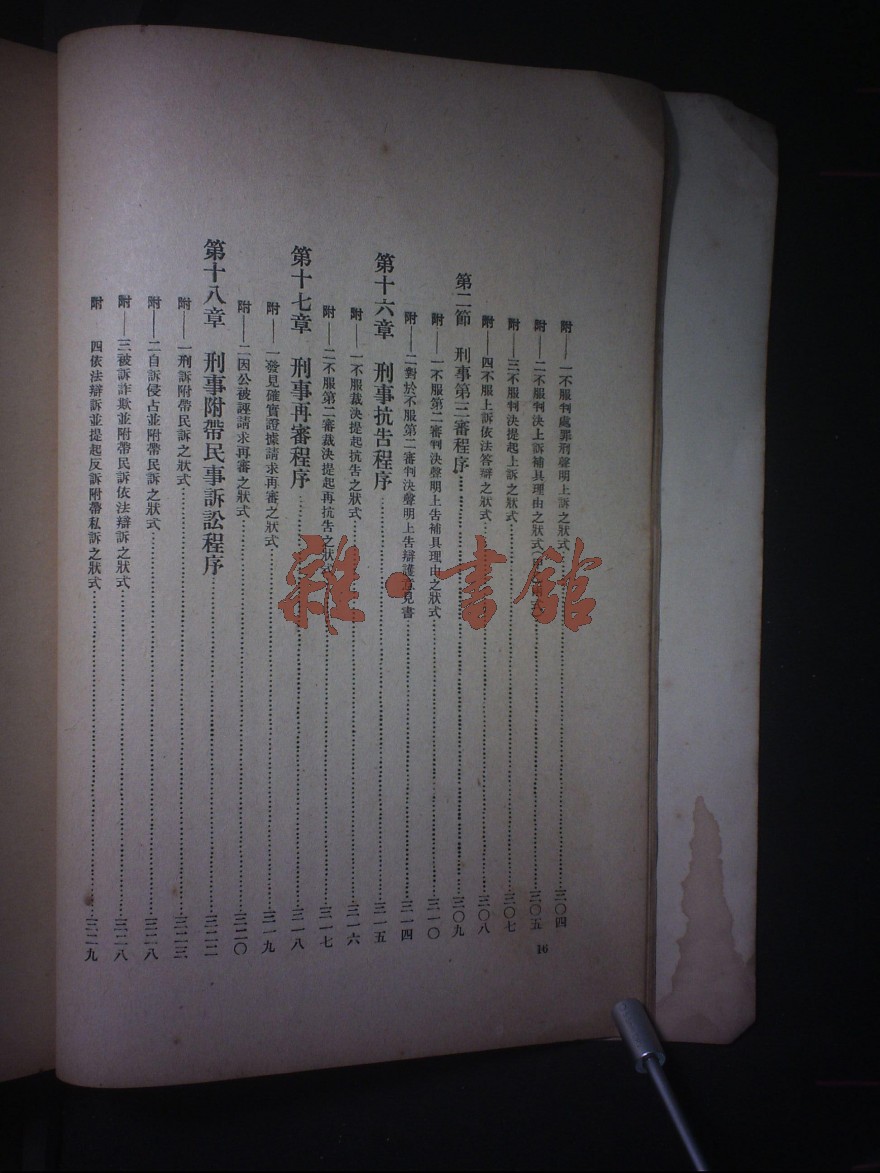 附——一不服判處罪刑聲明上訴之狀式……三〇四
附——二不服判決上訴補具理由之狀式……三〇五
附——三不服判決提起上訴之狀式……三〇七
附——四不服上訴依法答辯之狀式……三〇八
第二節 刑事第三審程序……三〇九
附——一不服第二審判決聲明上告補具理由之狀式……三一〇
附——二對於不服第二審判決聲明上告辯護意見書……三一四
第十六章 刑事抗告程序……三一五
附——一不服裁決提起抗告之狀式……三一六
附——二不服第二審裁決提起再抗告之狀式……三一七
第十七章 刑事再審程序……三一八
附——一發見確實證據請求再審之狀式……三一九
附——二因公被誣請求再審之狀式……三二〇
第十八章 刑事附帶民事訴訟程序……三二二
附——一刑訴附帶民訴之狀式……三二三
附——二自訴侵占並附帶民訴之狀式……三二八
附——三被訴詐欺並附帶民訴依法辯訴之狀式……三二八
附 四依法辯訴並提起反訴附帶私訴之狀式……三二九
16
雜·書館